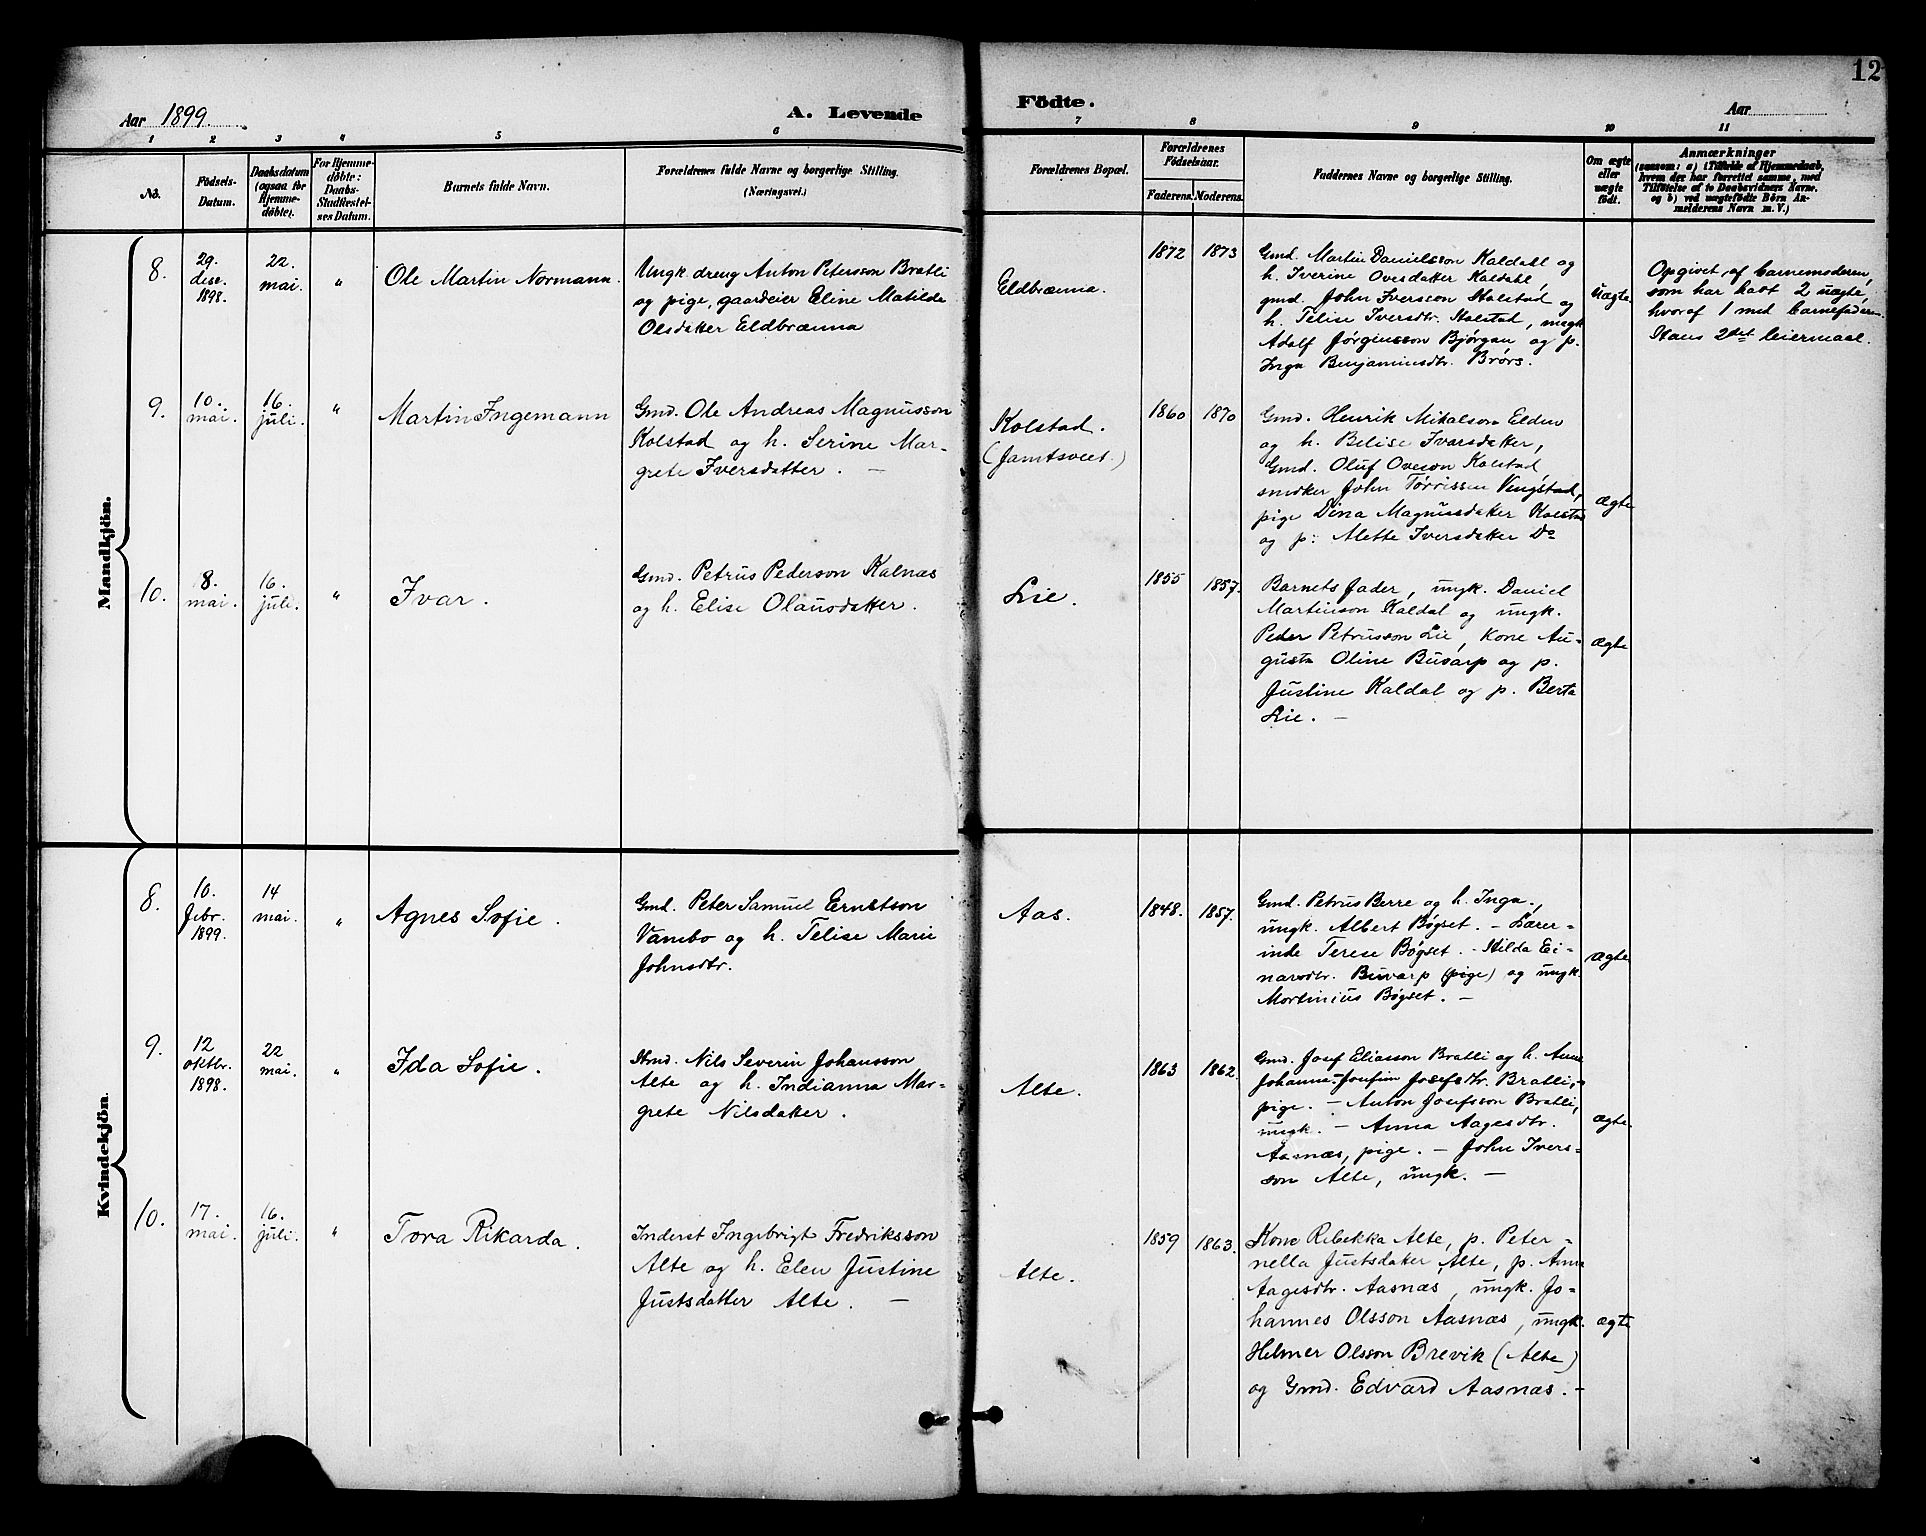 12
Aar 1899.
A. Levende
Födte.
Aar
1 2 3 4 5 6 7 8 9 10 11
No.
Födsels-
Datum.
Daabsdatum
(ogsaa for
Hjemme-
døbte).
For Hjemme-
døbte:
Daabs-
Stadfæstel-
ses Datum.
Barnets fulde Navn.
Forældrenes fulde Navne og borgerlige Stilling.
(Næringsvei.)
Forældrenes Bopæl.
Forældrenes
Födselsaar.
Faderens. Moderens.
Faddernes Navne og borgerlige Stilling.
Om ægte
eller
uægte
født.
Anmærkninger
(saasom: a) i Tilfælde af Hjemmedaab,
hvem der har forrettet samme, med
Tilföielse af to Daabsvidners Navne.
og b) ved uægtefødte Börn An-
melderens Navn m. V.)
Mandkjön.
8.
29.
dese.
1898.
22.
mai.
"
Ole Martin Normann.
Ungk dreng Anton Petersson Bratli
og pige, gaardeier Eline Matilde
Olsdatter Eldbrænna
Eldbrænna.
1872
1873
Gmd. Martin Danielsson Kaldahl og
h. Iverine Ovesdatter Kaldahl,
gmd. John Iversson Kolstad og
h. Telise Iversdtr. Kolstad, ungk
Adolf Jørgensson Bjørgan og p.
Inga Benjaminsdtr. Brørs.
uægte
Opgivet af barnemoderen,
som har havt 2 uægte,
hvoraf 1 med barnefaderen.
Hans 2det leiermaal.
9.
10.
mai.
16.
juli.
"
Martin Ingemann
Gmd. Ole Andreas Magnusson
Kolstad og h. Serine Mar-
grete Iversdatter. —
Kolstad.
(Jamtsveet.)
1860
1870
Gmd. Henrik Mikalson Elden
og h. Belise Ivarsdatter,
Gmd. Oluf Oveson Kolstad,
snedker John Tørrissen Vengstad,
pige Dina Magnusdatter Kolstad
og p: Mette Iversdatter Do
ægte
10.
8.
mai.
16.
juli.
"
Ivar.
Gmd. Petrus Pederson Kalnæs
og h. Elise Olausdatter.
Lie.
1855
1857.
Barnets fader, ungk. Daniel
Martinson Kaldal og ungk.
Peder Petrusson Lie, kone Au-
gusta Oline Buvarp og p.
Justine Kaldal og p. Berta
Lie. —
ægte
Kvindekjön.
8.
10.
febr.
1899.
14
mai.
"
Agnes Sofie.
Gmd. Peter Samuel Ernstson
Vambo og h. Telise Marie
Johnsdtr.
Aas.
1848.
1857.
Gmd. Petrus Berre og h. Inga.,
ungk. Albert Bøgset. - Lærer-
inde Terese Bøgset. - Hilda Ei-
narsdtr. Buvarp (pige) og ungk.
Mortinius Bøgset. —
ægte
9.
12
oktbr.
1898.
22
mai.
"
Ida Sofie.
Strnd. Nils Severin Johansson
Alte og h. Indianna Mar-
grete Nilsdatter.
Alte.
1863
1862.
Gmd. Josef Eliasson Bratli og h. Anne
Johanna - Josefine Josefsdtr. Bratli, -
pige. — Anton Josefsson Bratli,
ungk. — Anna Aagesdtr.
Aasnæs, pige. — John Ivers-
son Alte, ungk. —
ægte.
10.
17.
mai.
16.
juli.
"
Tora Rikarda.
Inderst Ingebrigt Fredriksson
Alte og h. Elen Justine
Justsdatter Alte. —
Alte.
1859
1863.
Kone Rebekka Alte, p. Peter-
nella Justsdatter Alte, p. Anna
Aagesdtr. Aasnæs, ungk. Jo-
hannes Olsson Aasnæs, ungk.
Helmer Olsson Brevik (Alte)
og Gmd. Edvard Aasnæs. -
ægte